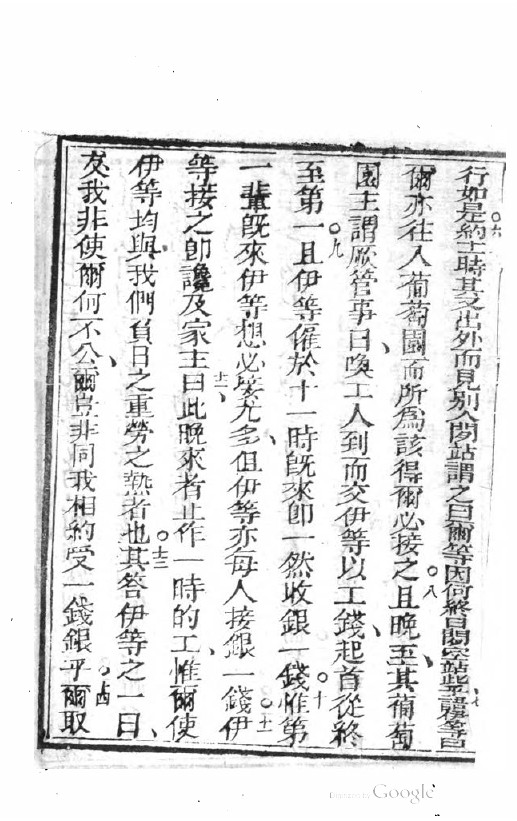 行如是○六約十一時其又出外而見別人閒站謂之曰爾等因何終日閒空站此七
爾亦往入葡萄園而所爲該得爾必接之○八且晚至、其葡萄
園主謂厥管事曰、喚工人到而交伊等以工錢、起首從終
至第一○九且伊等僱於十一時旣來卽一然收銀一錢○十惟第
一輩旣來伊等想必接尤多、但伊等亦每人接銀一錢○十一伊
等接之卽讒及家主十二、曰此晚來者止作一時的工、惟爾使
伊等均與我們負日之重勞之熱者也○十三其答伊等之一曰、
友我非使爾何不公、爾豈非同我相約受一錢銀乎○十四爾取
Digitized by Google